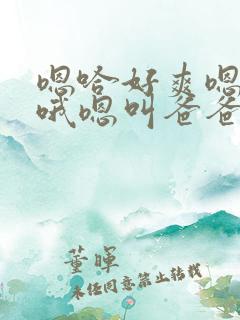 嗯哈好爽嗯
哦嗯叫爸爸
董晖
未经同意禁止转载